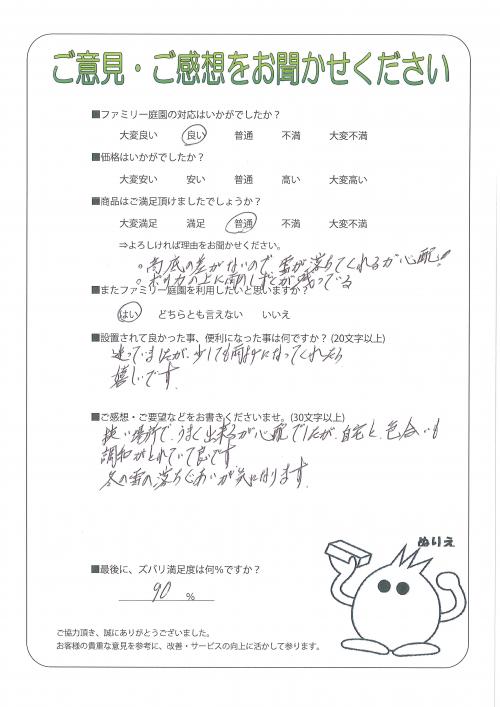 ご意見・ご感想をお聞かせください
■ファミリー庭園の対応はいかがでしたか？
大変良い 良い 普通 不満 大変不満
■価格はいかがでしたか？
大変安い 安い 普通 高い 大変高い
■商品はご満足頂けましたでしょうか？
大変満足 満足 普通 不満 大変不満
⇒よろしければ理由をお聞かせください。
。高低の差がないので雪が落ちてくれるか心配！
。ポリカの上に雨のしずくが残っている
■またファミリー庭園を利用したいと思いますか？
はい どちらとも言えない いいえ
■設置されて良かった事、便利になった事は何ですか？(20文字以上)
迷っていましたが、少しでも雨よけになってくれたら
嬉しいです。
■ご感想・ご要望などをお書きくださいませ。(30文字以上)
狭い場所で、うまく出来るか心配でしたが、自宅と、色合いも
調和がとれていて良です
冬の雪の落ちぐあいが気になります。
ぬりえ
■最後に、ズバリ満足度は何％ですか？
90 ％
ご協力頂き、誠にありがとうございました。
お客様の貴重な意見を参考に、改善・サービスの向上に活かして参ります。